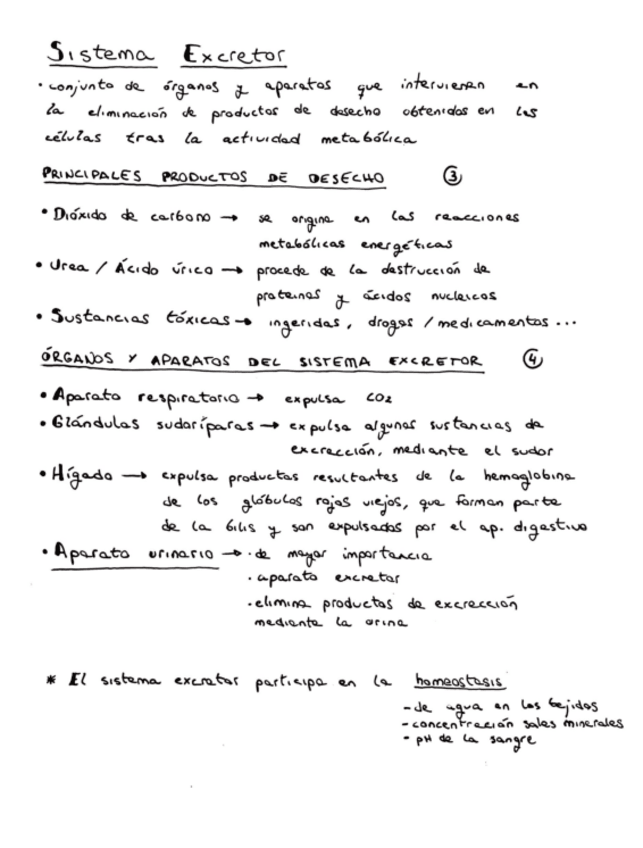 Sistema Excretor
· conjunto de órganos y aparatos que intervienen en
la eliminación de productos de desecho obtenidos en las
células tras la actividad metabólica
PRINCIPALES PRODUCTOS DE DESECHO ③
• Dióxido de carbono → se origina en las reacciones
metabólicas energéticas
• Urea / Ácido úrico → procede de la destrucción de
proteinas y ácidos nucleicos
• Sustancias tóxicas → ingeridas, drogas / medicamentos...
ÓRGANOS Y APARATOS DEL SISTEMA EXCRETOR ④
• Aparato respiratorio → expulsa CO2
• Glándulas sudoríparas → expulsa algunas sustancias de
excrección, mediante el sudor
• Hígado → expulsa productos resultantes de la hemoglobina
de los glóbulos rojos viejos, que forman parte
de la bilis y son expulsados por el ap. digestivo
• Aparato urinario → · de mayor importancia
· aparato excretor
· elimina productos de excrección
mediante la orina
* El sistema excretor participa en la homeostasis
- de agua en los tejidos
- concentración sales minerales
- pH de la sangre